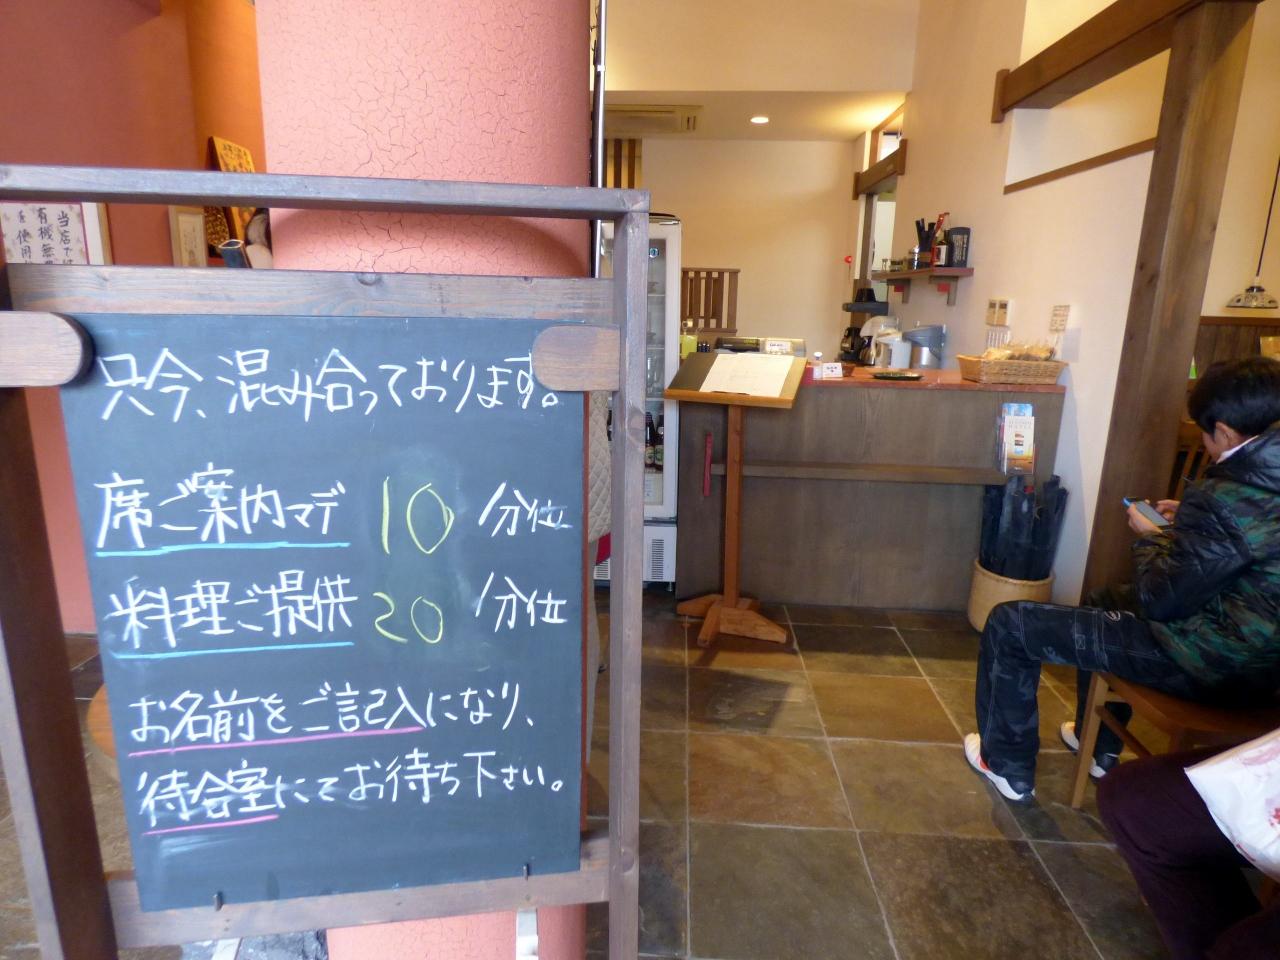 只今、混み合っております。
席ご案内マデ 10 分位
料理ご提供 20 分位
お名前をご記入になり、
待合室にてお待ち下さい。
当店では
有機無農
を使用